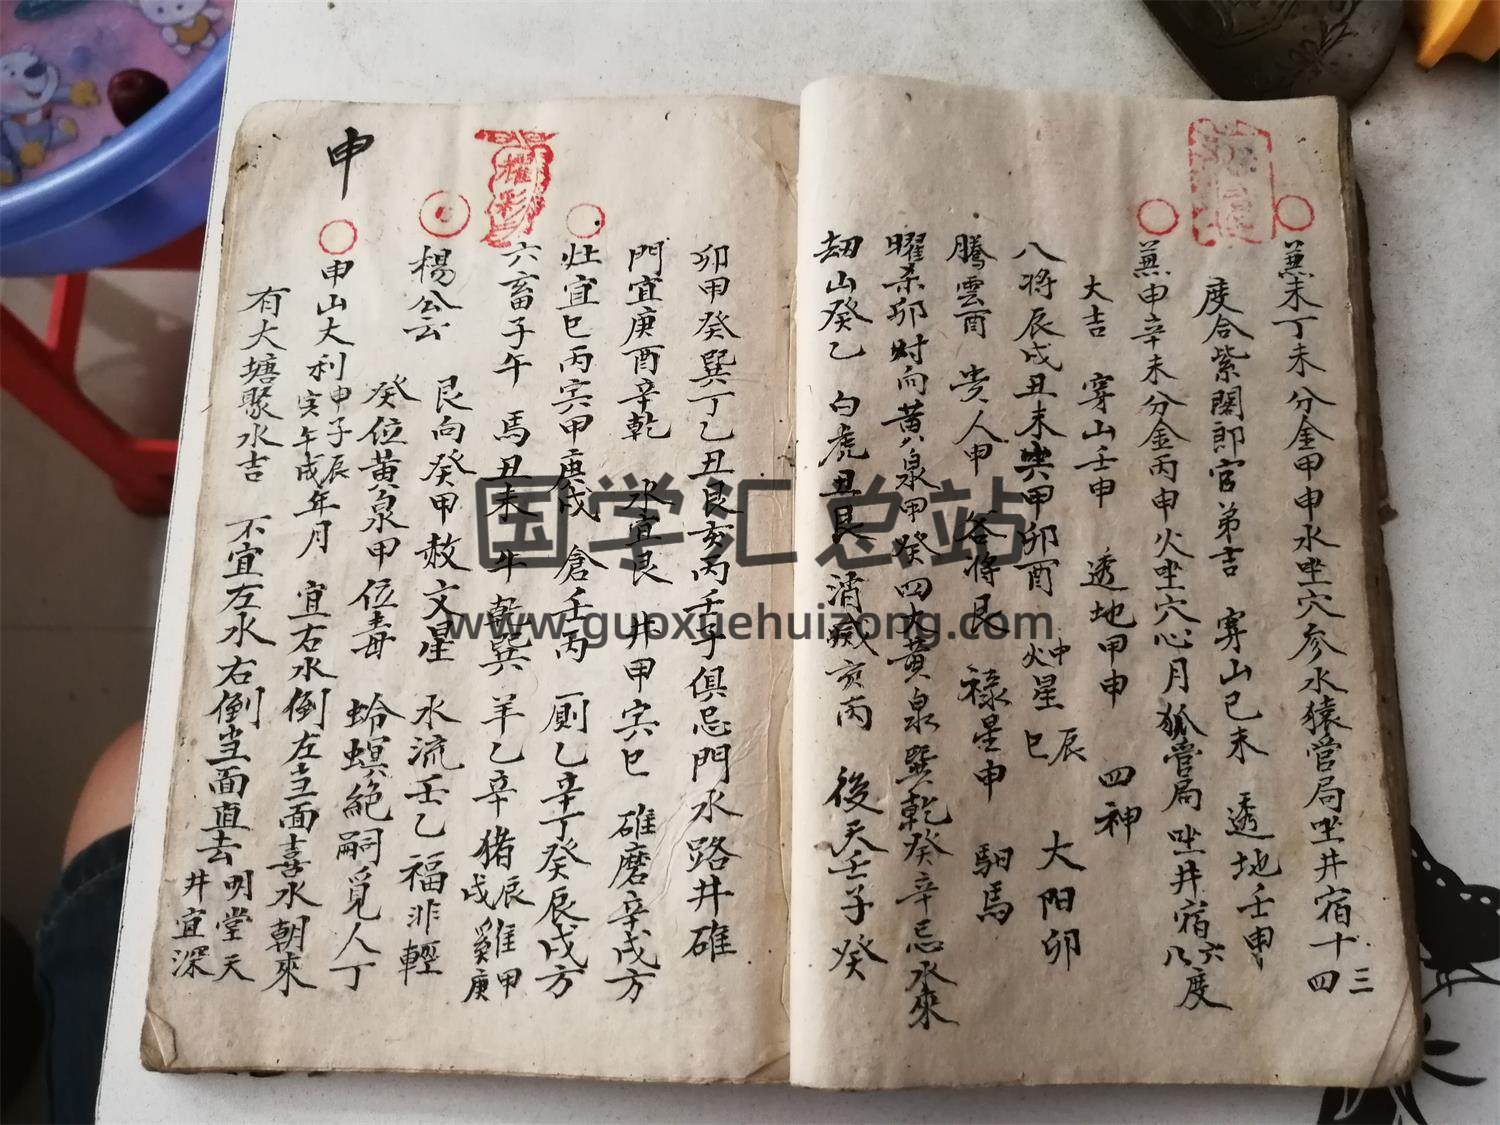 兼未丁未分金甲申水坐穴参水猿管局坐井宿十三四
度合紫閣郎官弟吉 穿山己未 透地壬申
兼申辛未分金丙申火坐穴心月狐管局坐井宿六八度
大吉 穿山壬申 透地甲申 四神
八将辰戌丑未寅甲卯酉 冲星辰巳 大阳卯
騰雲酉 贵人申 谷将艮 禄星申 駟馬
曜杀卯 对向黄泉甲癸 四大黄泉巽乾癸辛忌水來
劫山癸乙 白虎丑艮 消滅亥丙 後天壬子癸
卯甲癸巽丁乙丑艮亥丙壬子俱忌門水路井碓
門宜庚酉辛乾 水宜艮 井甲寅巳 碓磨辛戌方
灶宜巳丙寅甲庚戌 倉壬丙 厠乙辛丁癸辰戌方
六畜子午 馬丑未 牛乾巽 羊乙辛 猪辰戌 雞甲庚
楊公云 艮向癸甲赦文星 水流壬乙福非輕
癸位黄泉甲位毒 蛉螟絶嗣覓人丁
申
申山大利申子辰寅午戌年月 宜右水倒左主面喜水朝來
有大塘聚水吉 不宜左水右倒当面直去 明堂天井宜深
耀彩
国学汇总站
www.guoxuehuizong.com